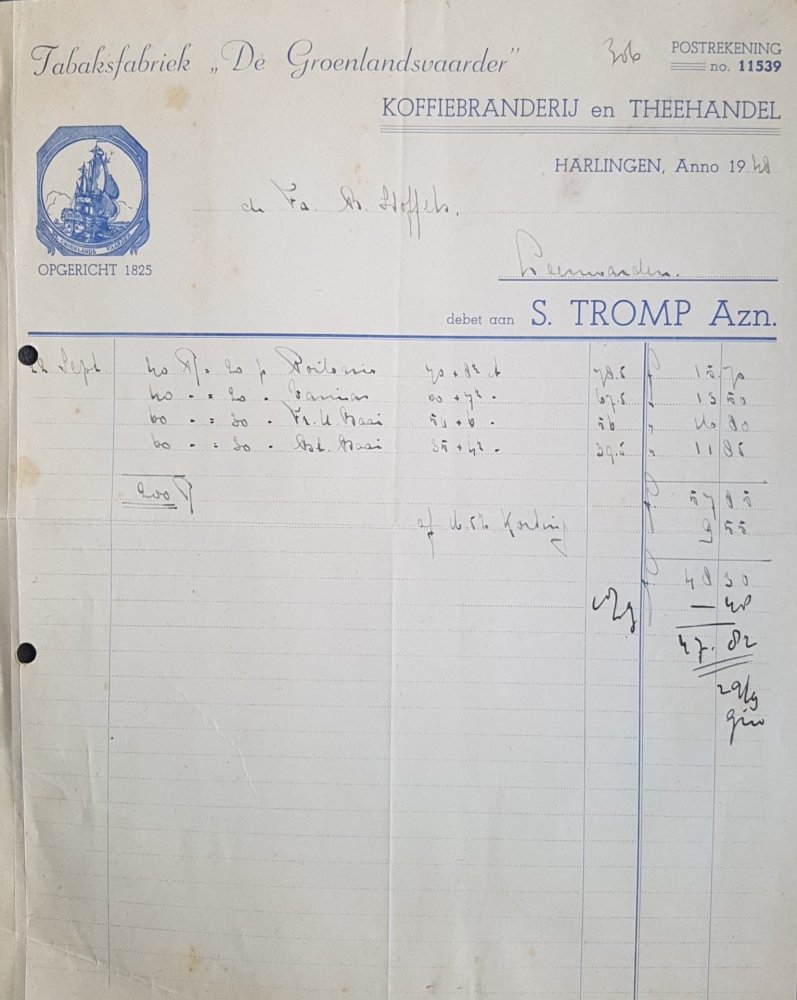 Tabaksfabriek „De Groenlandsvaarder”
306
POSTREKENING
no. 11539
KOFFIEBRANDERIJ en THEEHANDEL
HARLINGEN, Anno 1948
DE GROENLANDS VAARDER
OPGERICHT 1825
de Fa. B. Stoffels.
Leeuwarden.
debet aan S. TROMP Azn.
22 Sept 40 = 20 p 70 + 8½ 78.5 f 15 70
40 - = 20 - Varinas 60 + 7½ - 67.5 " 13 50
60 - = 30 - Fr. K. Baai 50 + 6 - 56 " 16 80
60 - = 30 - Bl. Baai 35 + 4½ - 39.5 " 11 85
200 f 57 85
af 16.5% Korting f 9 55
f 48 30
— 48
47.82
29/9
giro